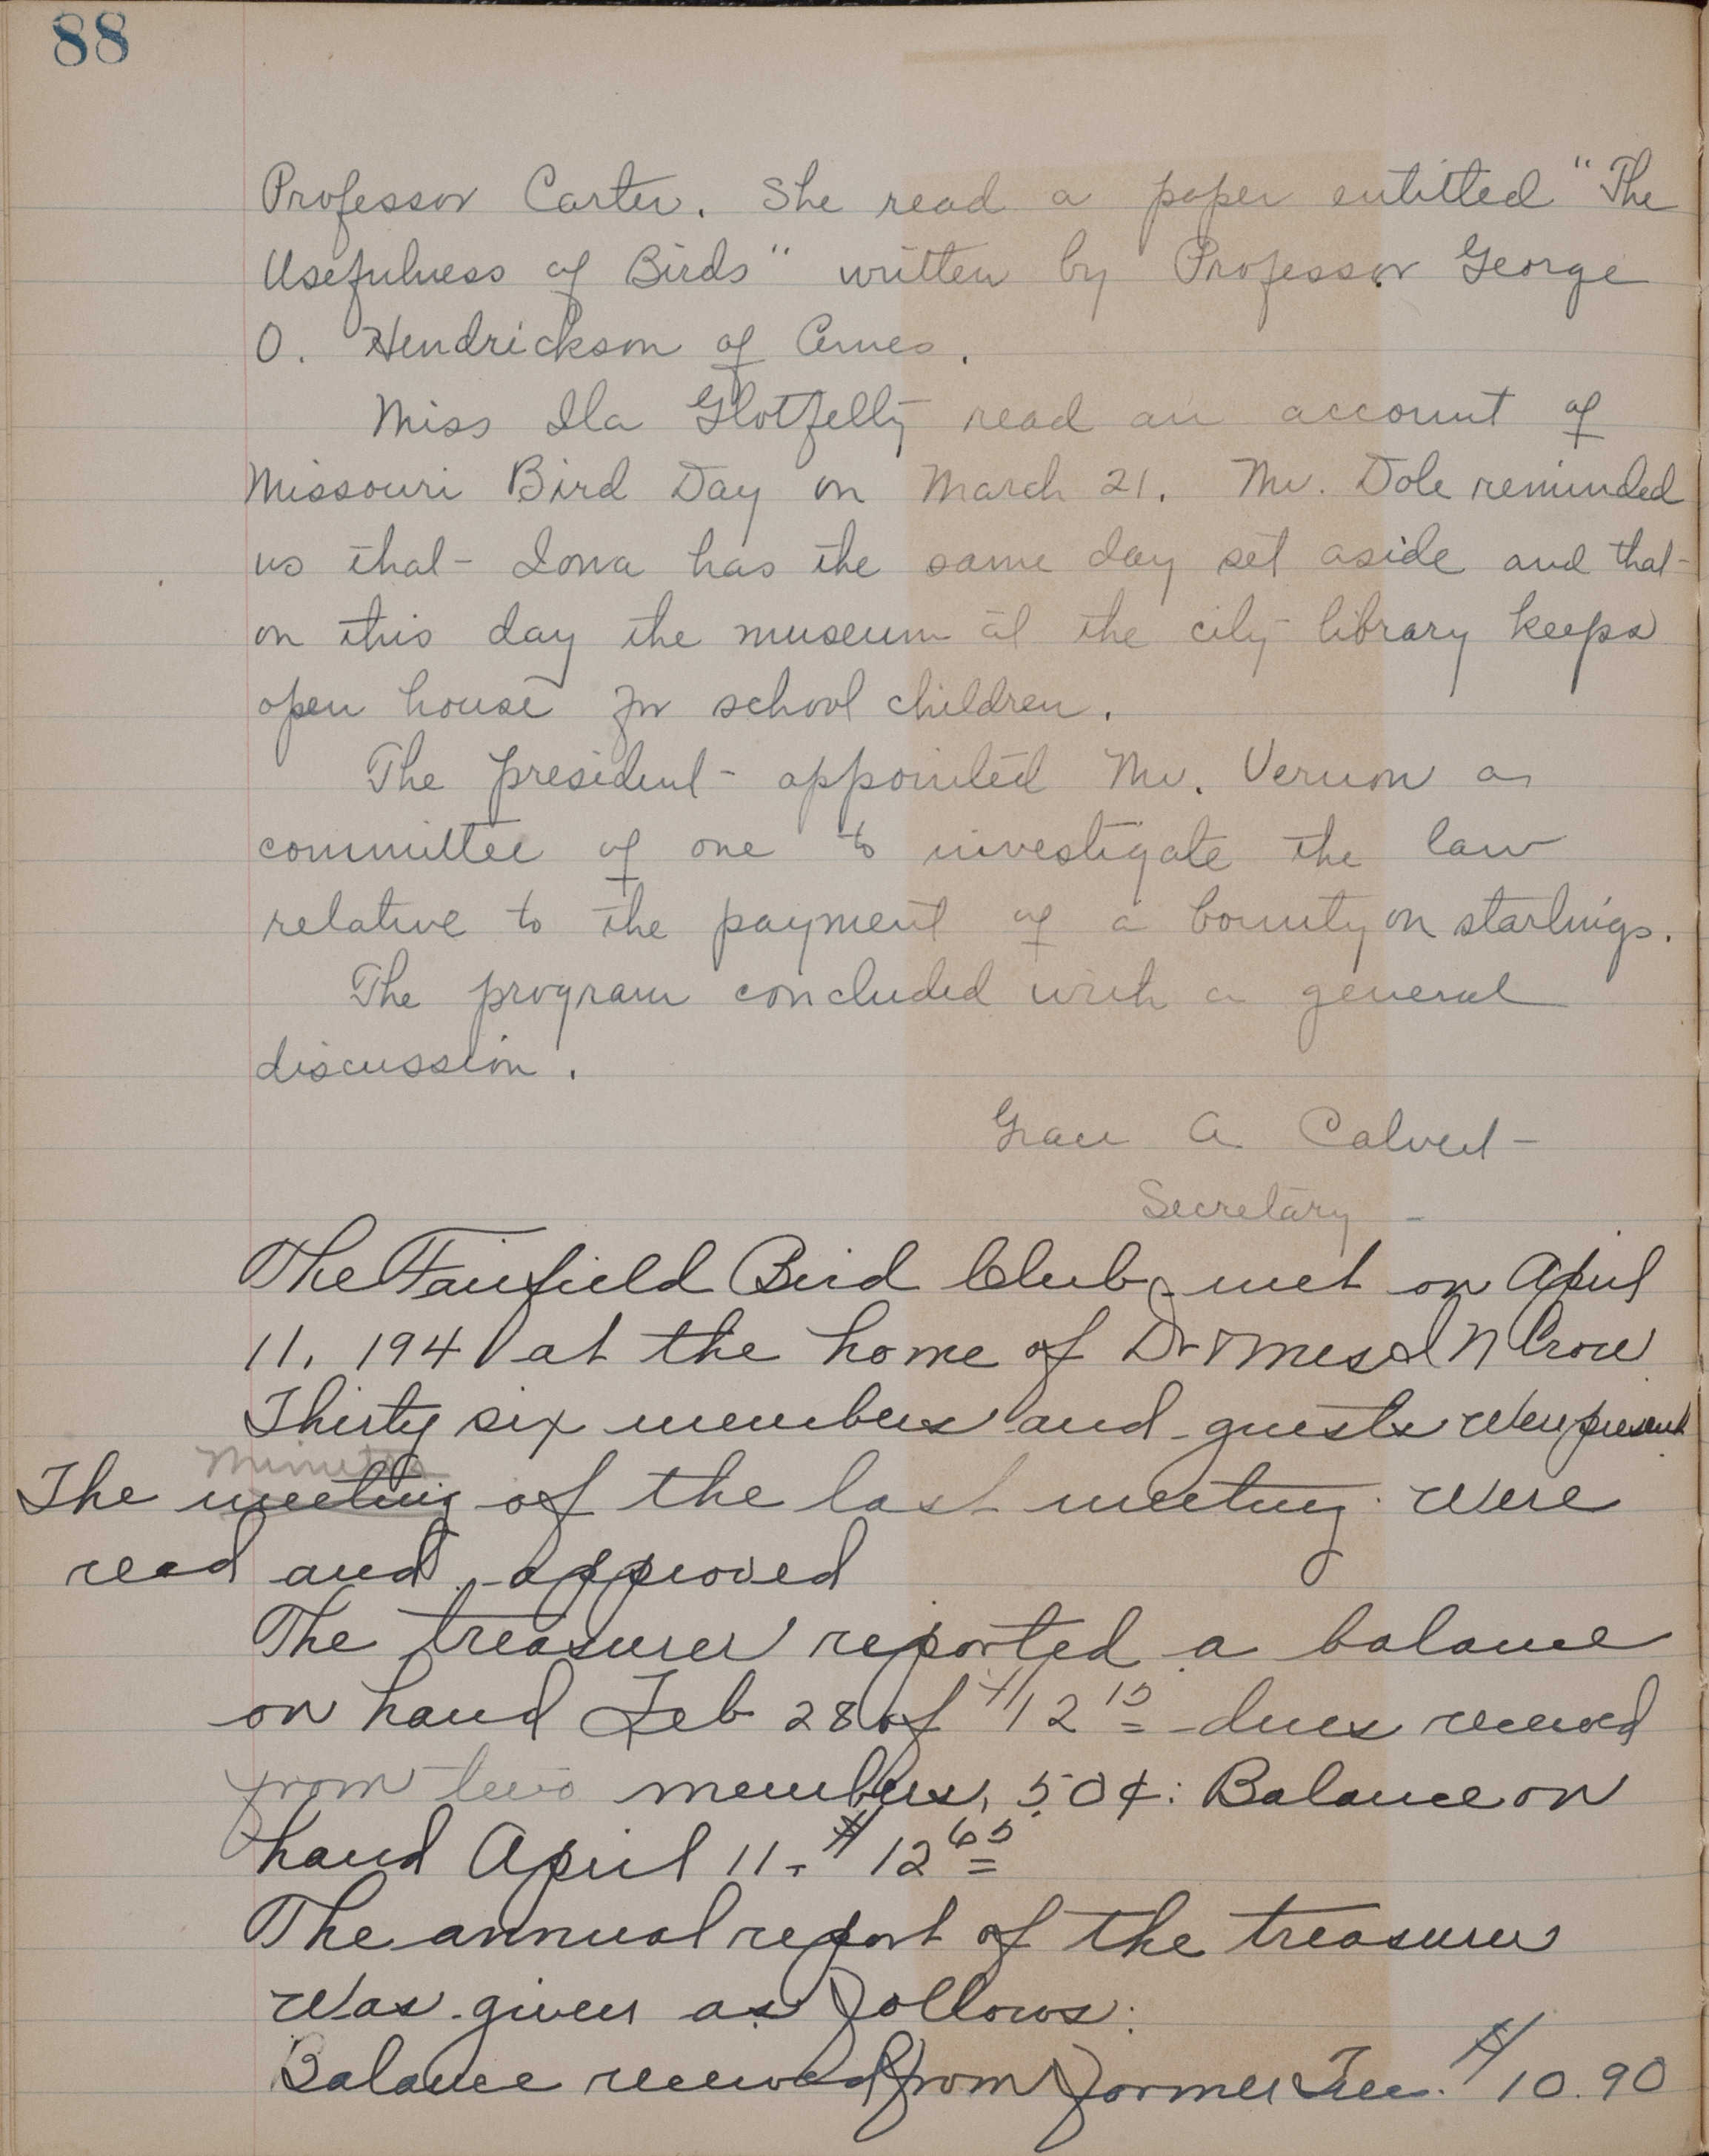 88
Professor Carter. She read a paper entitled "The
Usefulness of Birds" written by Professor George
O. Hendrickson of Ames.
Miss Ila Glotfelty read an account of
Missouri Bird Day on March 21. Mr. Dole reminded
us that Iowa has the same day set aside and that
on this day the museum at the city library keeps
open house for school children.
The president appointed Mr. Vernon as
committee of one to investigate the law
relative to the payment of a bounty on starlings.
The program concluded with a general
discussion.
Grace A Calvert
Secretary
The Fairfield Bird Club met on April
11, 1941 at the home of Dr & Mrs I N Crow
Thirty six members and guests were present
Minutes
The meeting of the last meeting were
read and approved
The treasurer reported a balance
on hand Feb 28 of $12 15 dues received
from two members, 50¢: Balance on
hand April 11. $12 65
The annual report of the treasurer
was given as follows:
Balance received from former Tree. $10.90